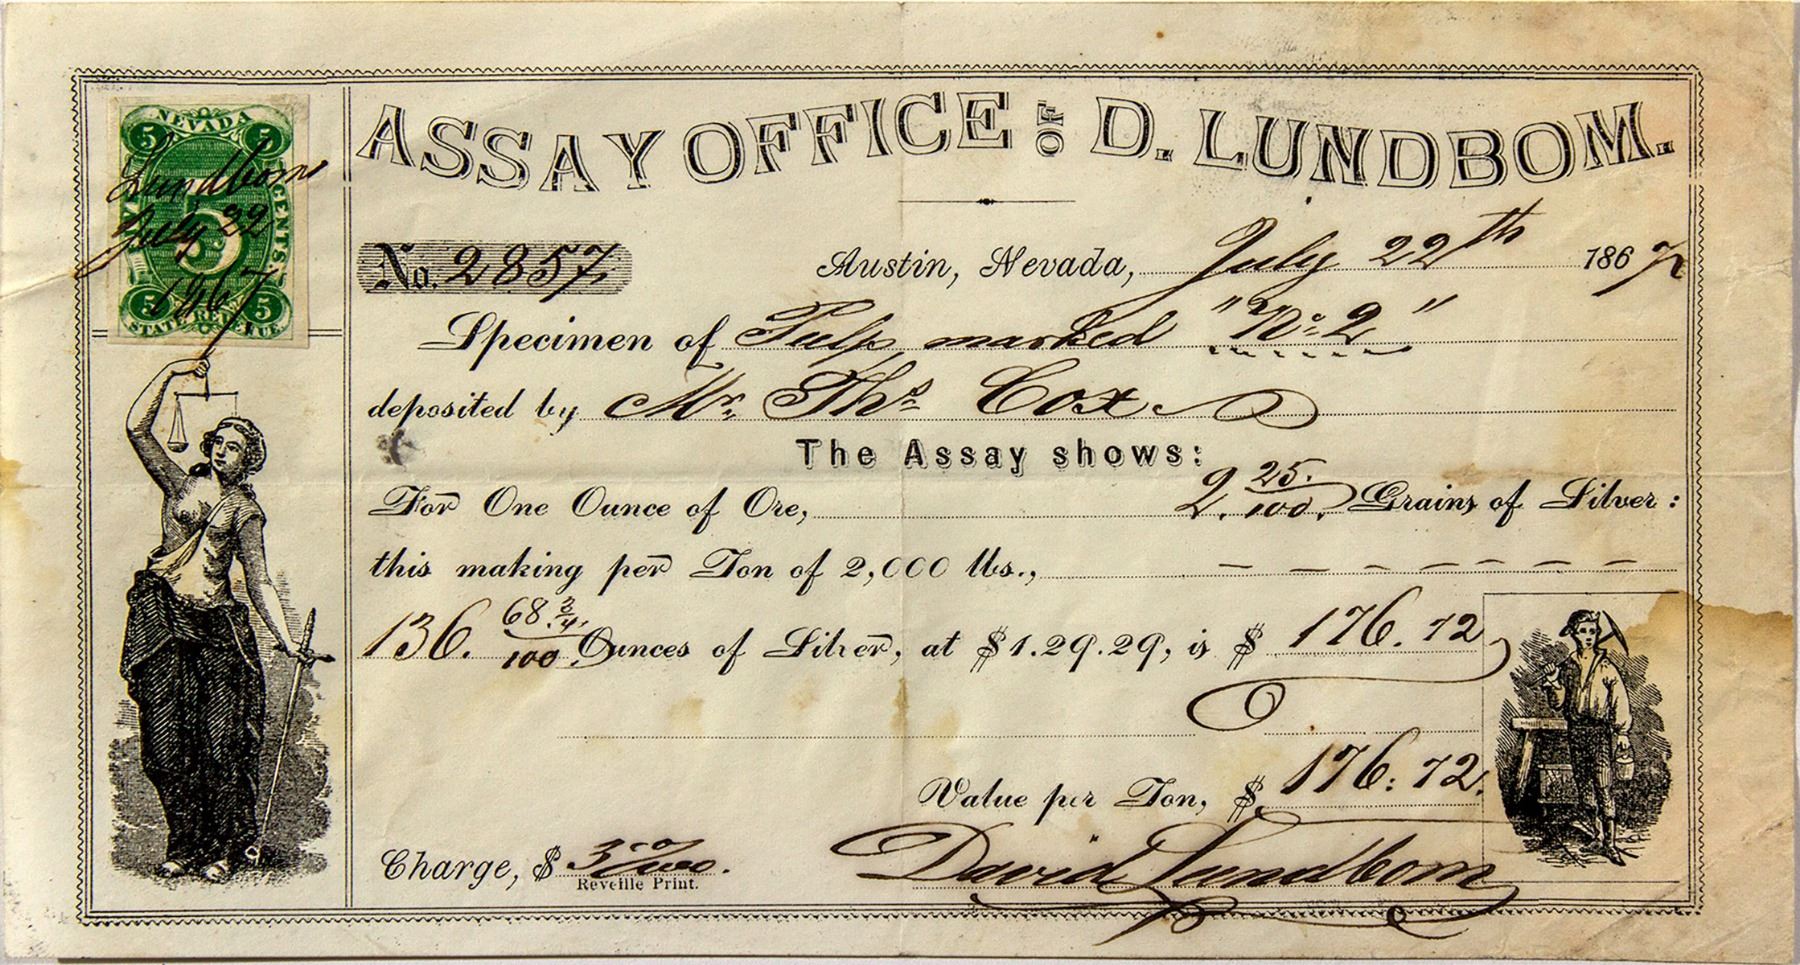 ASSAY OFFICE OF D. LUNDBOM.
NEVADA
5 5
FIVE 5 CENTS.
5 5
STATE REVENUE.
Lundbom
July 22
1867
No. 2857,
Austin, Nevada, July 22th 1867
Specimen of Pulp marked "No. 2"
deposited by Mr. Thos Cox
The Assay shows:
For One Ounce of Ore, 2. 25/100. Grains of Silver:
this making per Ton of 2,000 lbs.,
136. 68.3/4/100. Ounces of Silver, at $1.29.29, is $ 176.72
Value per Ton, $ 176.72.
Charge, $ 3 00/100.
Reveille Print.
David Lundbom